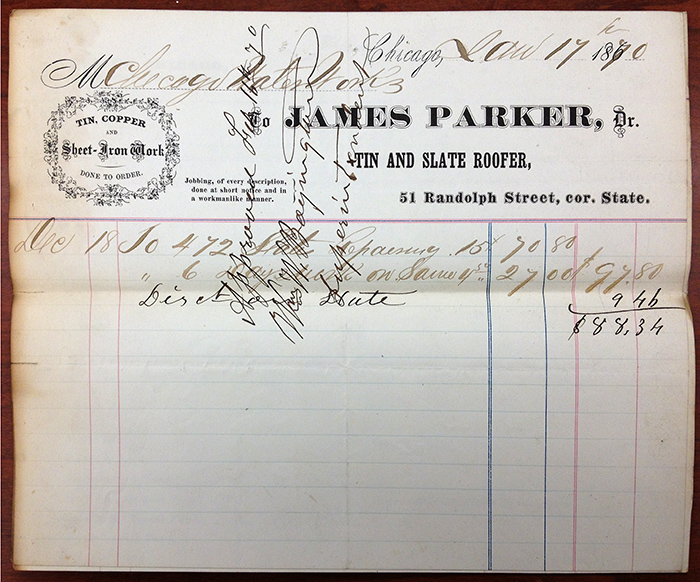 Chicago, Jan 17th 1870
M Chicago Water Works
To JAMES PARKER, Dr.
TIN, COPPER
AND
Sheet-Iron Work
DONE TO ORDER.
TIN AND SLATE ROOFER,
Jobbing, of every description,
done at short notice and in
a workmanlike manner.
51 Randolph Street, cor. State.
Dec 18 To 472 Slate 15¢ 70 80
" 6 Days on Same 4.50 27 00 97.80
Disct Slate 9 46
$88,34
Approved 70
Superintendent